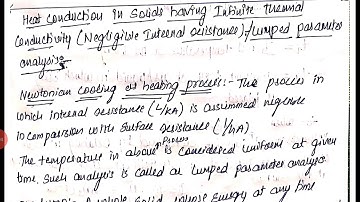 Heat conduction in Solids having Infinite Thermal
Conductivity (Negligible Internal resistance)-/Lumped parameter
analysis:-
Newtonian cooling or heating process:- The process in
which internal resistance (L/KA) is assummed
in comparision with surface resistance (1/hA)
The temperature in above process is considered uniform at given
time. Such analysis is called as lumped parameter analysis
whole solid whose energy at any time